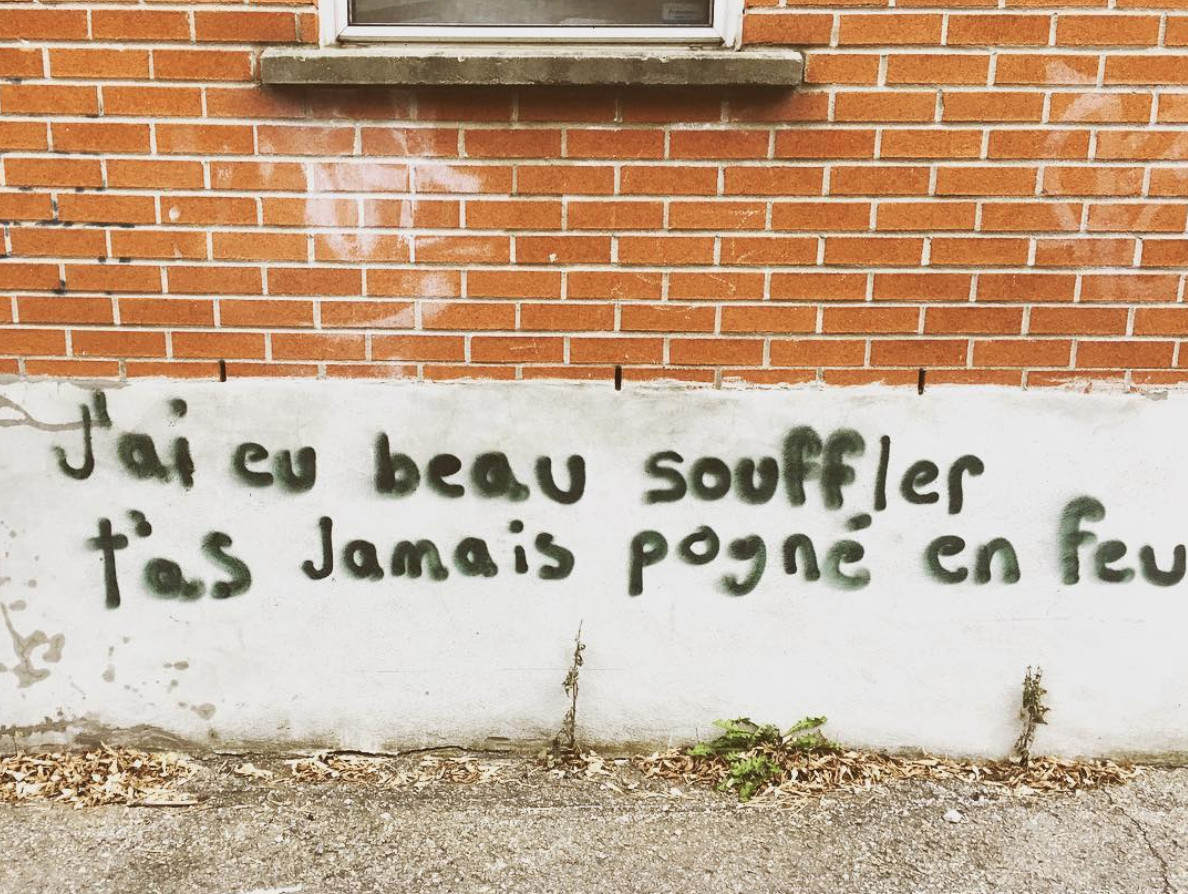 J'ai eu beau souffler
t'as Jamais pogné en feu